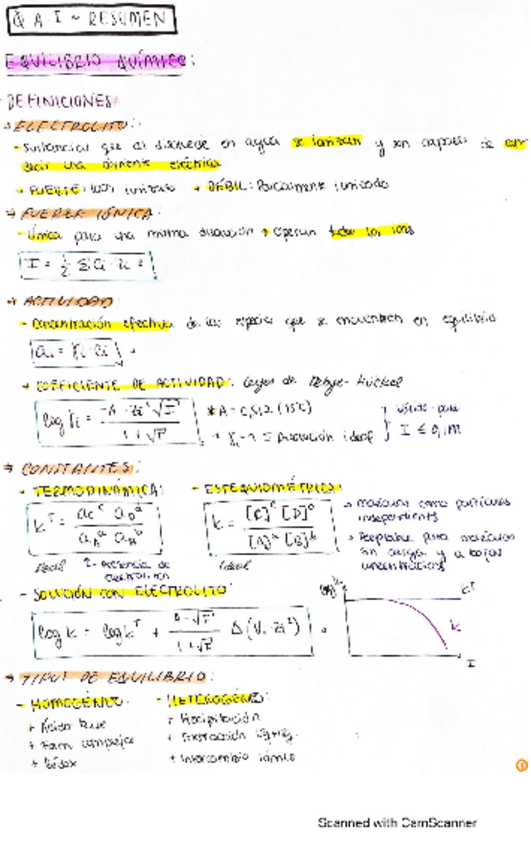 Q.A.I ~ RESUMEN
EQUILIBRIO QUÍMICO:
DEFINICIONES
→ ELECTROLITO:
- Sustancias que al disolverse en agua se ionizan y son capaces de con
ducir una corriente eléctrica
→ FUERTE: 100% ionizado → DÉBIL: Parcialmente ionizado
→ FUERZA IÓNICA:
- Única para una misma disolución → Operan todos los iones
I = 1/2 Σ Ci · Zi²
→ ACTIVIDAD
- Concentración efectiva de las especies que se encuentran en equilibrio
ai = γi · ci
→ COEFICIENTE DE ACTIVIDAD: Leyes de Debye-Hückel
log γi = -A · Zi² √I / 1+√I * A = 0,512 (25°C) válido para
γi = 1 ≡ Disolución ideal I ≤ 0,1M
→ CONSTANTES:
- TERMODINÁMICA: - ESTEQUIOMÉTRICA:
K^T = ac^c aD^d / aA^a aB^b K = [C]^c [D]^d / [A]^a [B]^b → moléculas como partículas independientes
→ Aceptable para moléculas sin carga y a bajas concentraciones
Real Ideal
- SOLUCIÓN CON ELECTROLITO
log K = log K^T + A·√I / 1+√I Δ(ν · Zi²)
log K
K^T
K
I
→ TIPOS DE EQUILIBRIO:
- HOMOGÉNEO: - HETEROGÉNEO:
+ Ácido base + Precipitación
+ Form complejos + Extracción
+ Redox + Intercambio iónico
1
Scanned with CamScanner